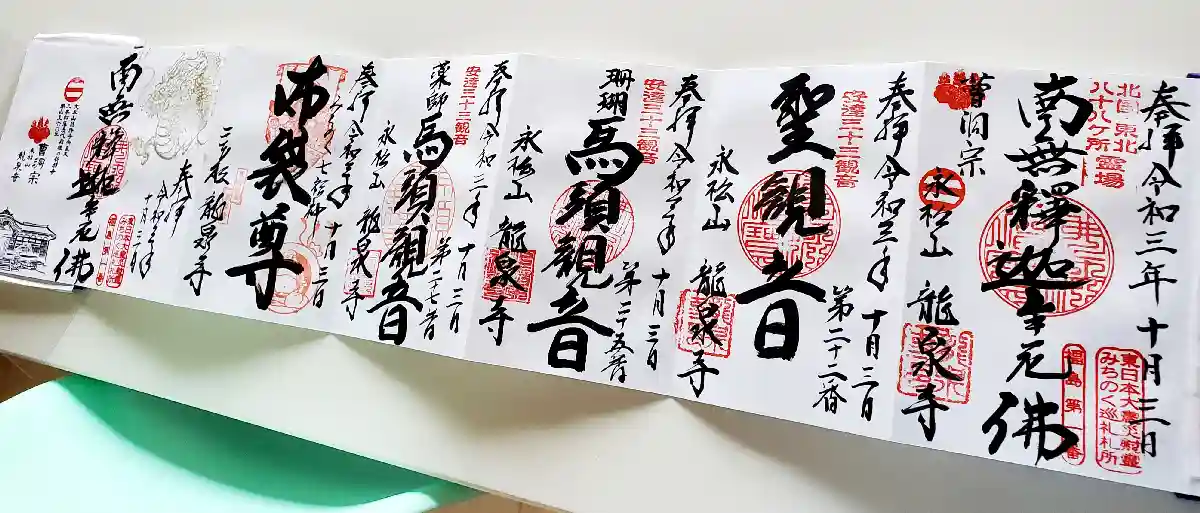 奉拝 令和三年 十月三日
北国 東北
八十八ヶ所 霊場
南無釋迦牟尼佛
東日本大震災慰霊
みちのく巡礼札所
福島第一番
曹洞宗
永松山 龍泉寺
奉拝 令和三年 十月三日
安達三十三観音
第二十二番
聖観音
永松山 龍泉寺
奉拝 令和三年 十月三日
安達三十三観音
第二十五番
珊瑚 馬頭観音
永松山 龍泉寺
奉拝 令和三年 十月三日
安達三十三観音
第二十七番
薬師 馬頭観音
永松山 龍泉寺
奉拝 令和三年 十月三日
布袋尊
龍泉寺
奉拝
南無釋迦牟尼佛
曹洞宗
龍泉寺